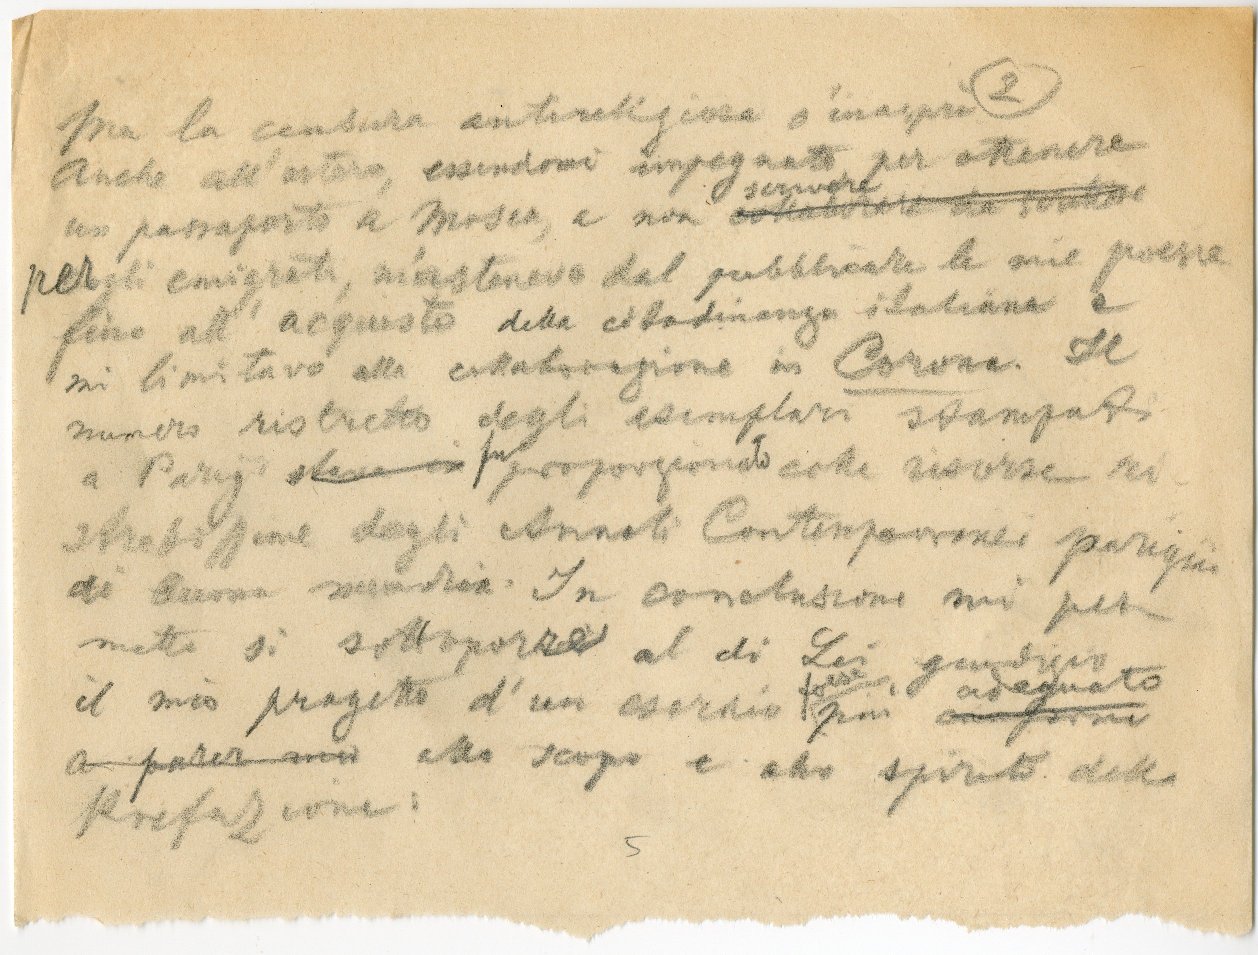 2
Ma la censura antireligiosa s'inasprì
Anche all'estero, essendomi impegnato per ottenere
un passaporto a Mosca, a non scrivere collaborare da
per gli emigrati, m'astenevo dal pubblicare le mie poesie
fino all'acquisto della cittadinanza italiana e
mi limitavo alla collaborazione in Corona. Il
numero ristretto degli esemplari stampati
a Parigi stava in fu proporzionato colle risorse ri-
strettissime degli Annali Contemporanei parigini
di buona memoria. In conclusione mi per
metto si sottoporre al di Lei giudizio
il mio progetto d'un esordio forse più conforme adeguato
a parer mio allo scopo e allo spirito della
Prefazione:
5